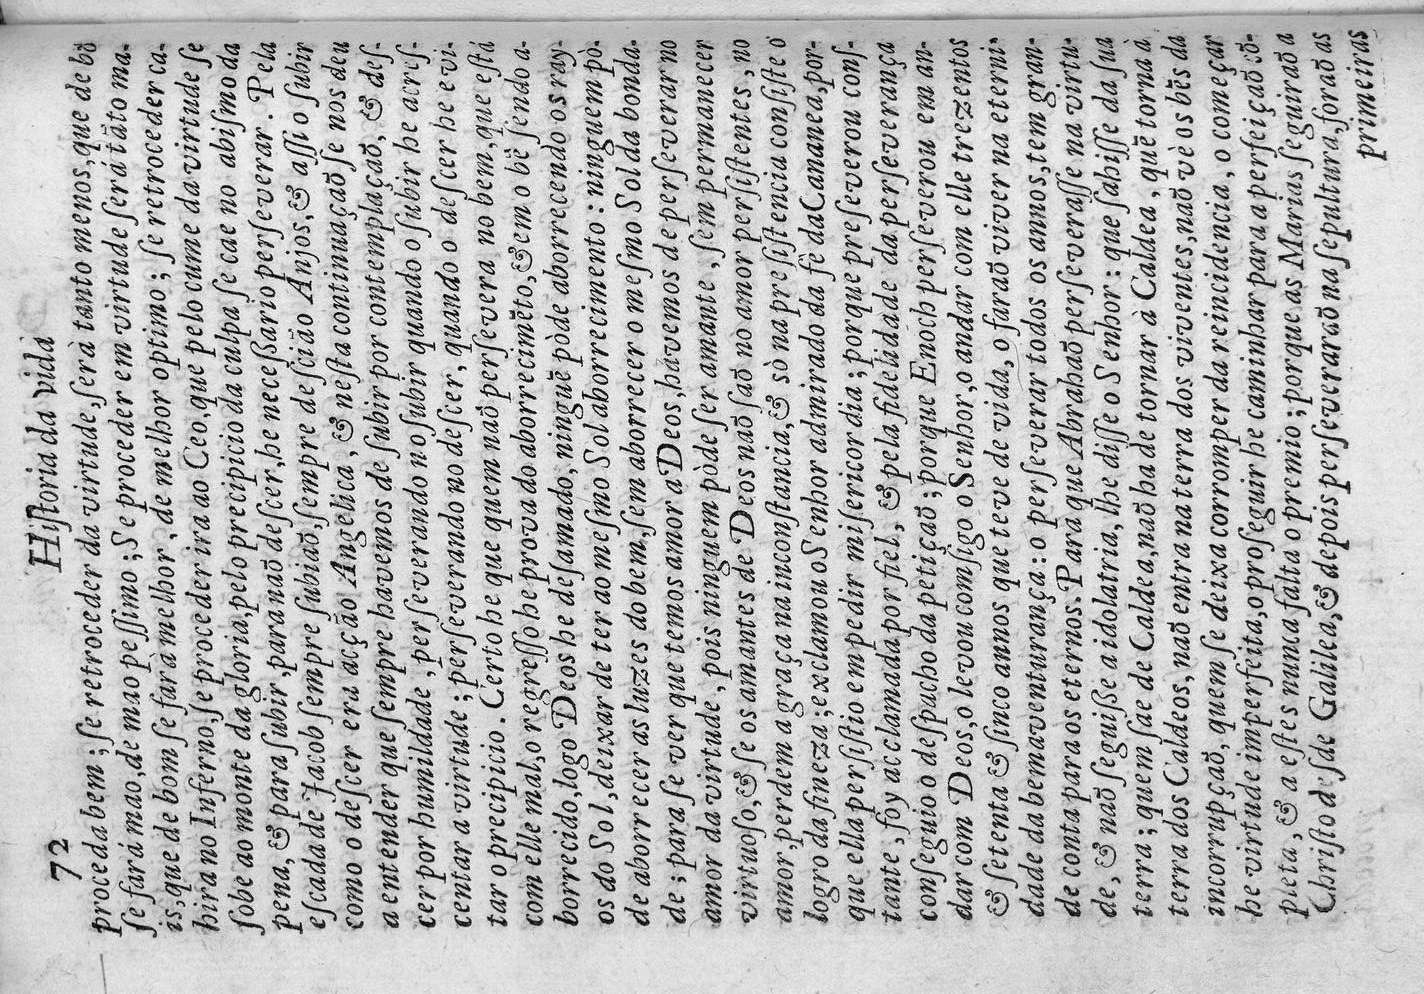 72 Hiſtoria da vida
proceda bem; ſe retroceder da virtude, ſerà tanto menos, que de bõ
ſe fará mao, de mao peſſimo; Se proceder em virtude ſerá tãto ma-
is, que de bom ſe farà melhor, de melhor optimo; ſe retroceder ca-
hira no Inferno, ſe proceder ira ao Ceo, que pelo cume da virtude ſe
ſobe ao monte da gloria, pelo precipicio da culpa ſe cae no abiſmo da
pena, & para ſubir, para naõ deſcer, he neceſſario perſeverar. Pela
eſcada de Jacob ſempre ſubiaõ, ſempre deſciãо Anjos, & aſſi o ſubir
como o deſcer era acçãо Angelica, & neſta continuaçaõ ſe nos deu
a entender que ſempre havemos de ſubir por contemplaçaõ, & deſ-
cer por humildade, perſeverando no ſubir quando o ſubir he acreſ-
centar a virtude; perſeverando no deſcer, quando o deſcer he evi-
tar o precipicio. Certo he que quem naõ perſevera no bem, que eſtá
com elle mal, o regreſſo he prova do aborrecimẽto, & em o bẽ ſendo a-
borrecido, logo Deos he deſamado, ninguẽ pòde aborrecendo os ray-
os do Sol, deixar de ter ao meſmo Sol aborrecimento: ninguem pò-
de aborrecer as luzes do bem, ſem aborrecer o meſmo Sol da bonda-
de; para ſe ver que temos amor a Deos, havemos de perſeverar no
amor da virtude, pois ninguem pòde ſer amante, ſem permanecer
virtuoſo, & ſe os amantes de Deos naõ ſaõ no amor perſiſtentes, no
amor, perdem a graça na inconſtancia, & sò na preſiſtencia conſiſte o
logro da fineza; exclamou o Senhor admirado da fè da Cananea, por-
que ella perſiſtio em pedir miſericordia; porque preſeverou conſ-
tante, foy acclamada por fiel, & pela fidelidade da perſeverança
conſeguio o deſpacho da petiçaõ; porque Enoch perſeverou em an-
dar com Deos, o levou comſigo o Senhor, o andar com elle trezentos
& ſetenta & ſinco annos que teve de vida, o faraõ viver na eterni-
dade da bemaventurança: o perſeverar todos os annos, tem gran-
de conta para os eternos. Para que Abrahaõ perſeveraſſe na virtu-
de, & naõ ſeguiſſe a idolatria, lhe diſſe o Senhor: que ſahiſſe da ſua
terra; quem ſae de Caldea, naõ ha de tornar à Caldea, quẽ torna à
terra dos Caldeos, naõ entra na terra dos viventes, naõ vè os bẽs da
incorrupçaõ, quem ſe deixa corromper da reincidencia, o começar
he virtude imperfeita, o proſeguir he caminhar para a perfeiçaõ cõ-
pleta, & a eſtes nunca falta o premio; porque as Marias ſeguiraõ a
Chriſto deſde Galilea, & depois perſeveraraõ na ſepultura, foraõ as
primeiras